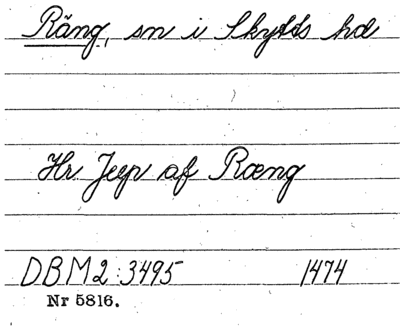 Räng, sn i Skytts hd
Hr Jeip af Ræng
DBM2:3495 1474
Nr 5816.